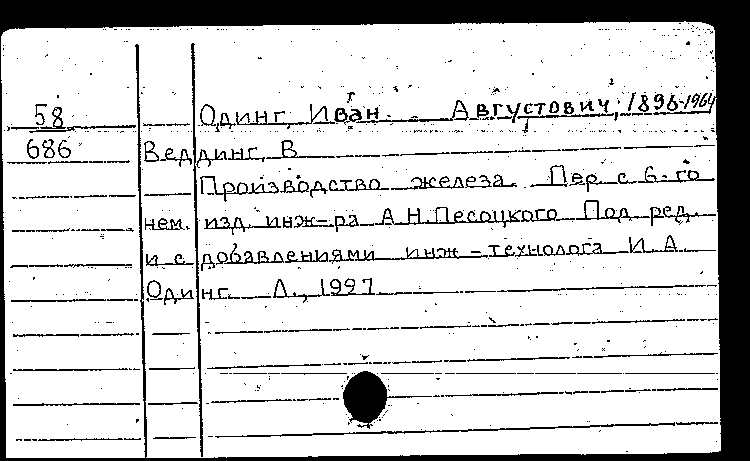 58 Одинг, Иван Августович, 1896-1964
686 Веддинг, В
Производство железа. Пер. с 6-го
нем. изд. инж-ра А.Н.Песоцкого Под ред.
и с добавлениями инж-технолога И.А.
Одинг. Л., 1927